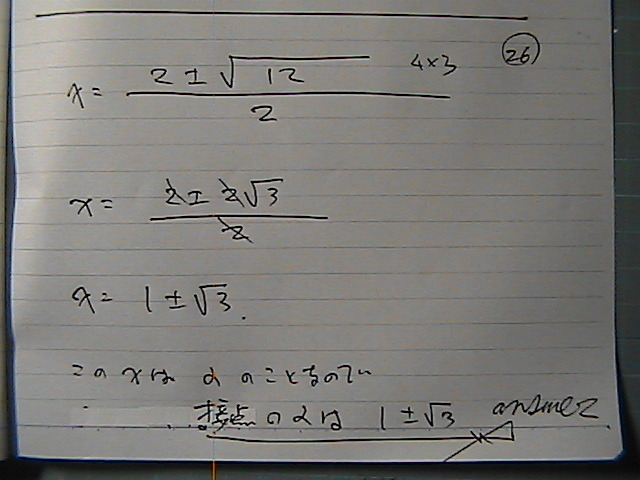 x = (2 ± √12) / 2 4×3 ㉖
x = (2 ± 2√3) / 2
x = 1 ± √3.
この x は α のことなので
∴ 接点の α は 1 ± √3 answer